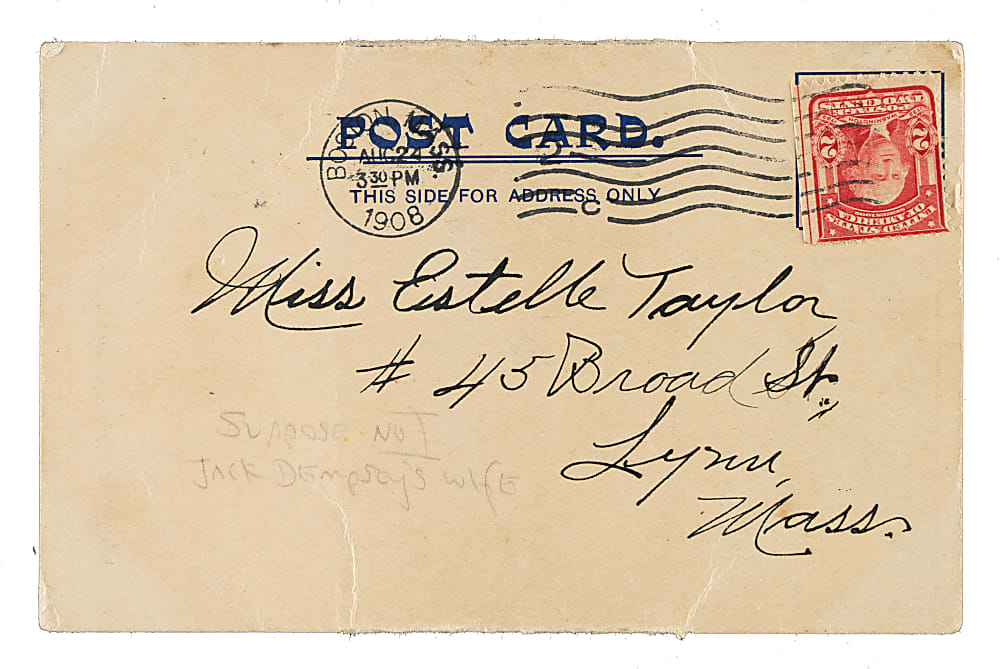 POST CARD.
THIS SIDE FOR ADDRESS ONLY
BOSTON MASS.
AUG 24
3 30 PM
1908
C
UNITED STATES
OF AMERICA
2 2
WASHINGTON
POSTAGE
TWO CENTS
Miss Estelle Taylor
# 45 Broad St.
Lynn,
Mass.
Suppose NOT
JACK DEMPSEY'S WIFE